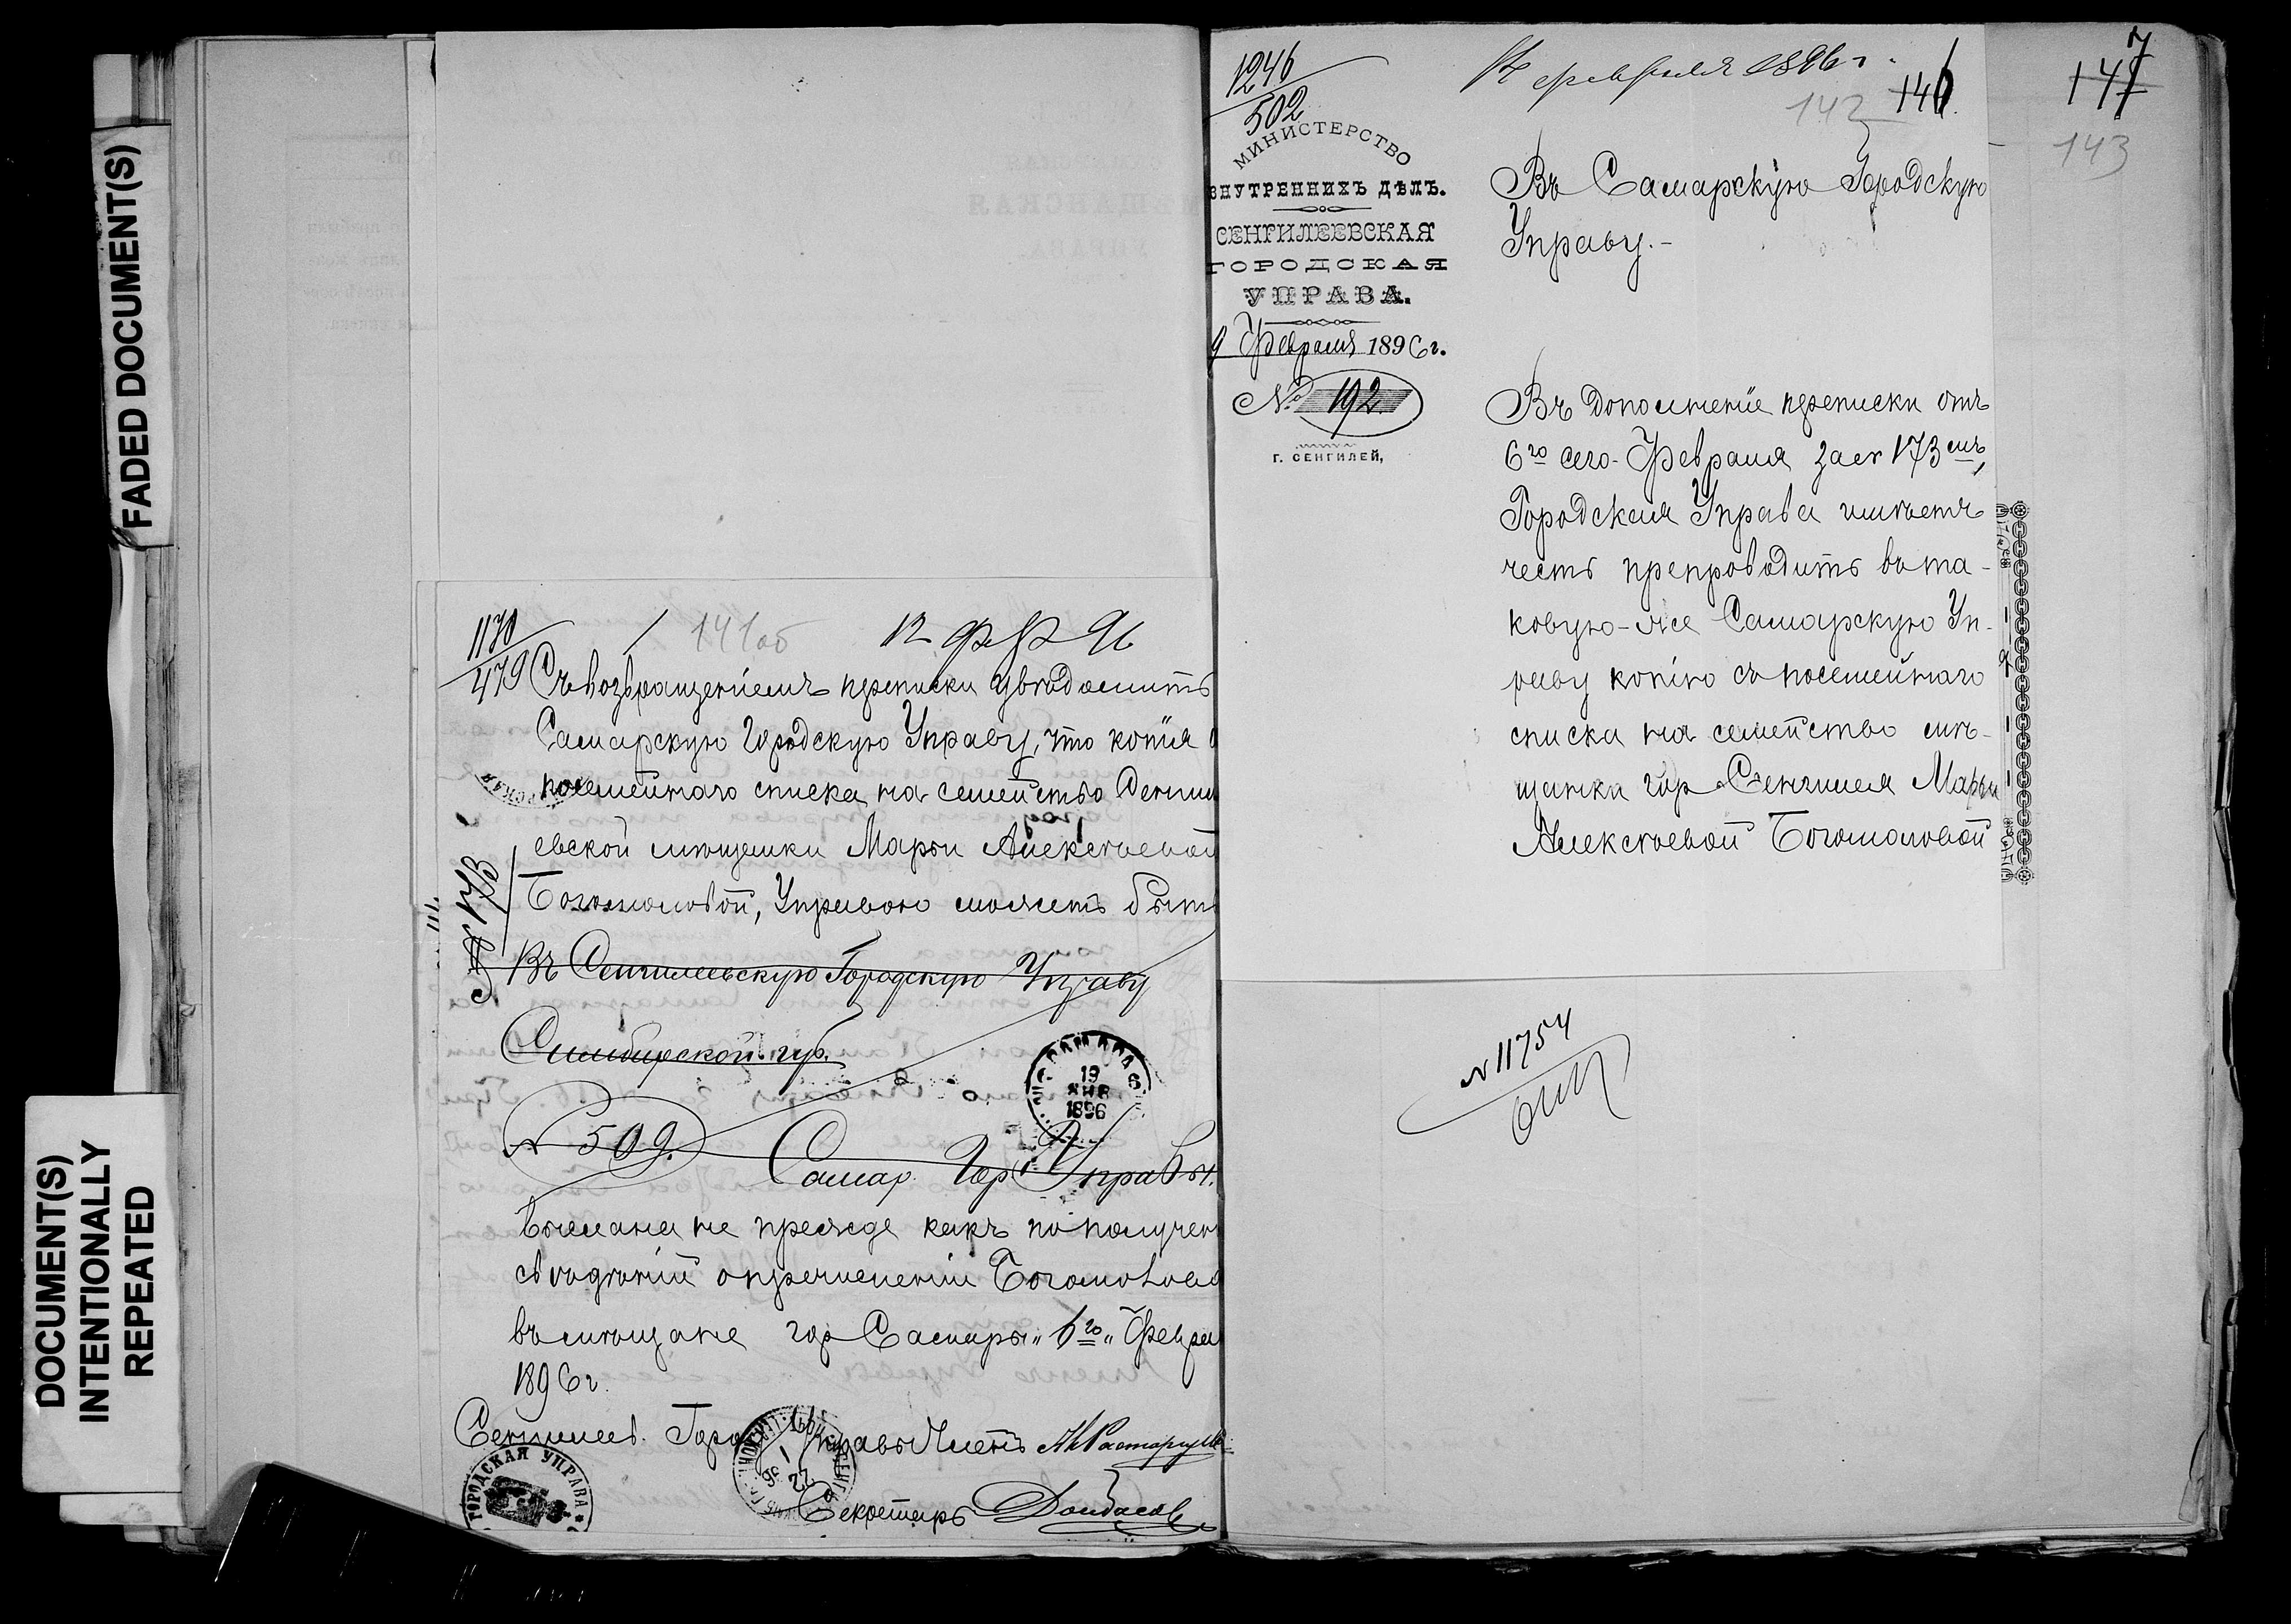 FADED DOCUMENT(S)
DOCUMENT(S)
INTENTIONALLY
REPEATED
1170
479
141об
12 фев 96
Съ возвращеніемъ переписки увѣдомить
Самарскую Городскую Управу, что копія
посемейнаго списка на семейство Сенгил
евской мѣщанки Марьи Алексѣевой
Богомоловой, Управою можетъ быть
№ 173
Въ Сенгилеевскую Городскую Управу
Симбирской губ.
САМАРА
19
ЯНВ
1896
№ 509.
Самар. Гор. Управы.
выслана не прежде какъ по получен
свѣдѣній о причисленіи Богомолово
въ мѣщане гор Самары „6го„ Февра
1896 г.
Сенгилеев. Горо Управы Членъ
22
Секретарь
ГОРОДСКАЯ УПРАВА
1246
502
14 февраля 1896 г.
142 146
147
143
МИНИСТЕРСТВО
ВНУТРЕННИХЪ ДѢЛЪ.
СЕНГИЛЕЕВСКАЯ
ГОРОДСКАЯ
УПРАВА.
9 Февраля 1896 г.
№ 192
Г. СЕНГИЛЕЙ,
Въ Самарскую Городскую
Управу.-
Въ дополненіе переписки отъ
6го сего Февраля за № 173мъ,
Городская Управа имѣетъ
честь препроводить въ та-
ковую-же Самарскую Уп-
раву копію съ посемейнаго
списка на семейство мѣ-
щанки гор Сенгилея Марьи
Алексѣевой Богомоловой
№ 11754